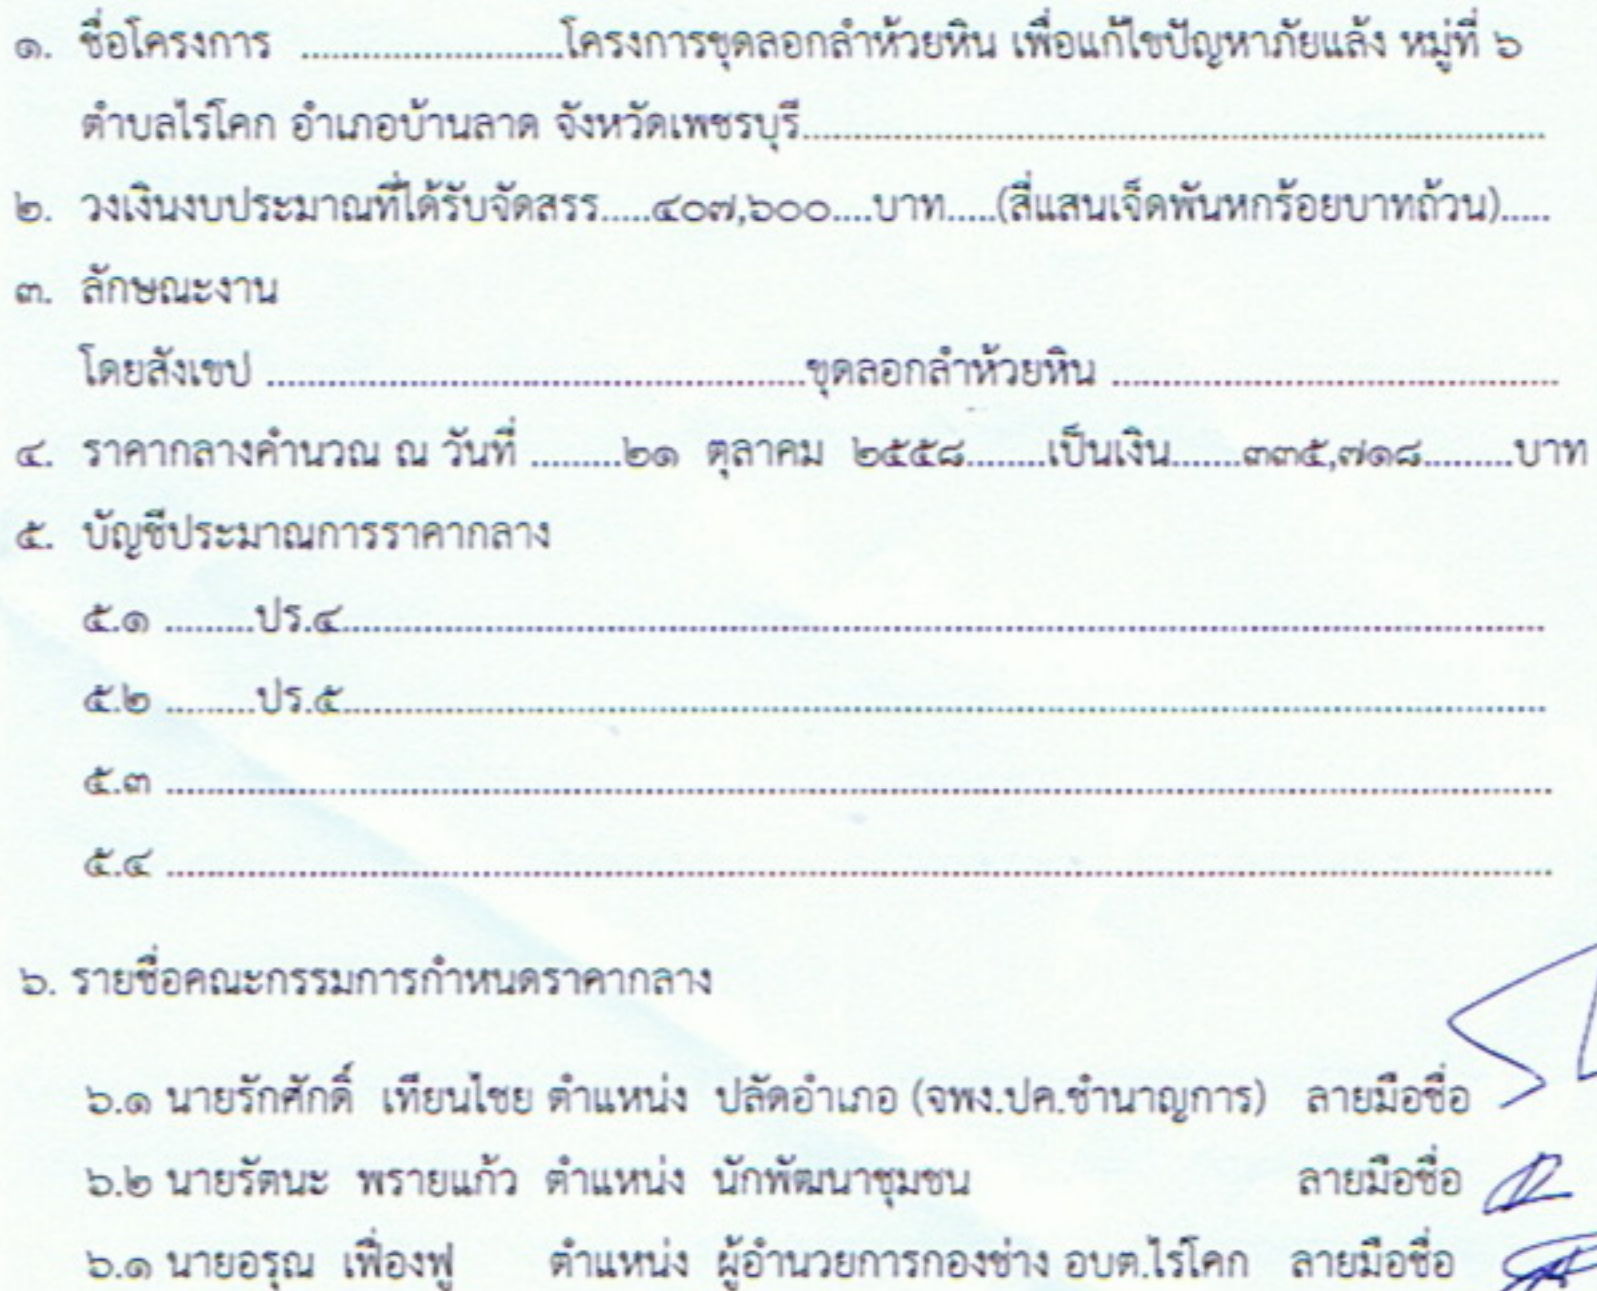 ๑. ชื่อโครงการ .........................โครงการขุดลอกลำห้วยหิน เพื่อแก้ไขปัญหาภัยแล้ง หมู่ที่ ๖
ตำบลไร่โคก อำเภอบ้านลาด จังหวัดเพชรบุรี.........................................................................
๒. วงเงินงบประมาณที่ได้รับจัดสรร.....๔๐๗,๖๐๐....บาท.....(สี่แสนเจ็ดพันหกร้อยบาทถ้วน).....
๓. ลักษณะงาน
โดยสังเขป .....................................................ขุดลอกลำห้วยหิน ............................................
๔. ราคากลางคำนวณ ณ วันที่ .........๒๑ ตุลาคม ๒๕๕๘........เป็นเงิน.......๓๓๕,๗๑๘.........บาท
๕. บัญชีประมาณการราคากลาง
๕.๑ .........ปร.๔.......................................................................................................................
๕.๒ .........ปร.๕.......................................................................................................................
๕.๓ .........................................................................................................................................
๕.๔ .........................................................................................................................................
๖. รายชื่อคณะกรรมการกำหนดราคากลาง
๖.๑ นายรักศักดิ์ เทียนไชย ตำแหน่ง ปลัดอำเภอ (จพง.ปค.ชำนาญการ) ลายมือชื่อ
๖.๒ นายรัตนะ พรายแก้ว ตำแหน่ง นักพัฒนาชุมชน ลายมือชื่อ
๖.๑ นายอรุณ เฟื่องฟู ตำแหน่ง ผู้อำนวยการกองช่าง อบต.ไร่โคก ลายมือชื่อ